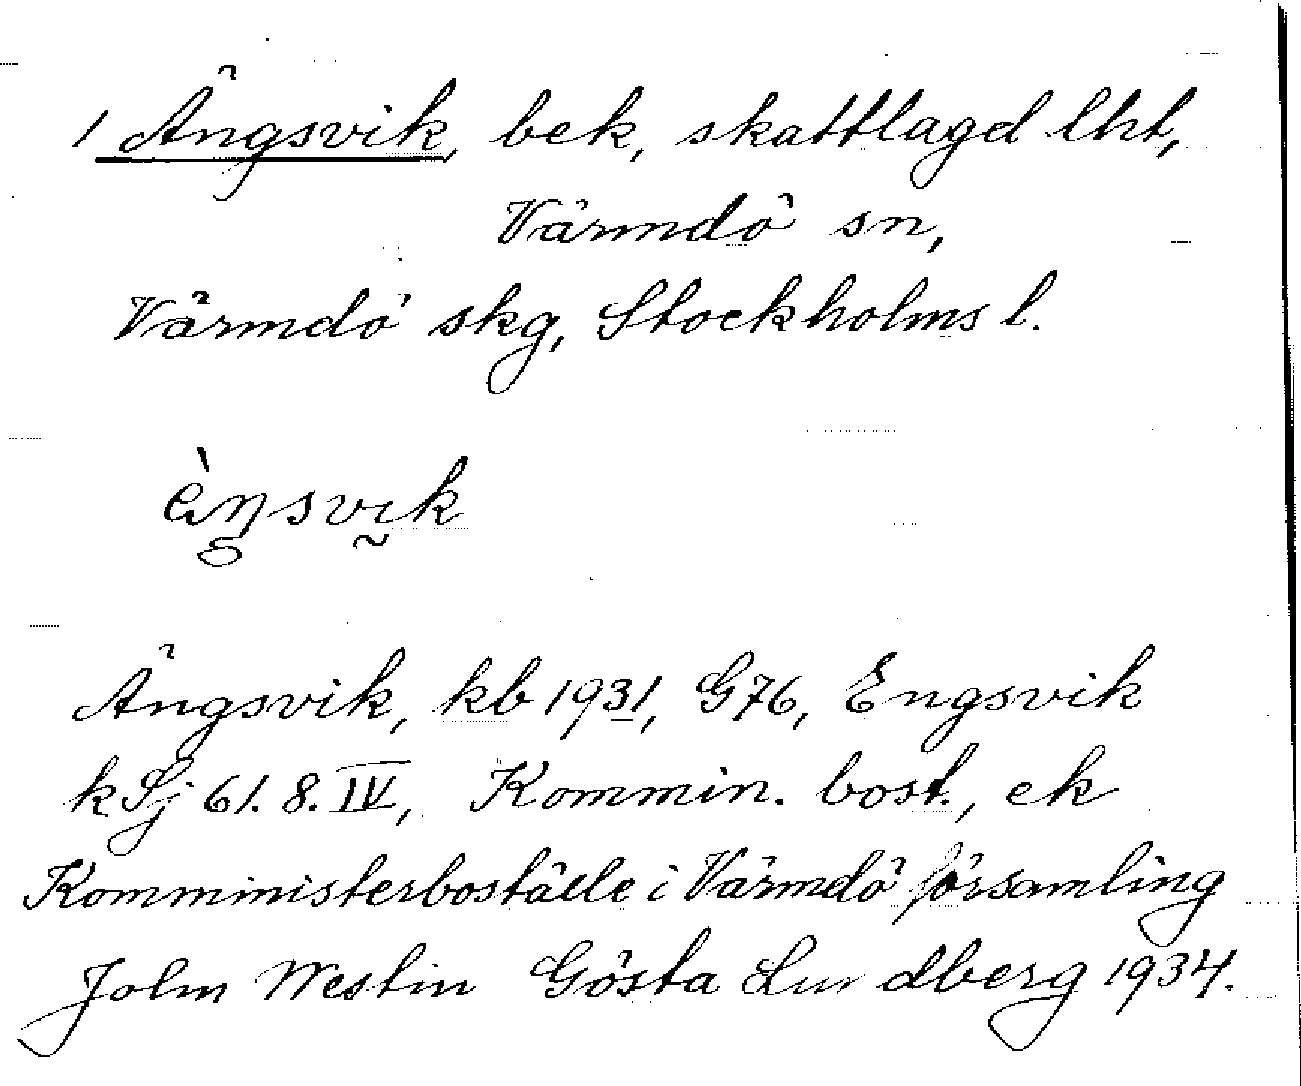 1 Ängsvik, bek, skattlagd lht,
Värmdö sn,
Värmdö skg, Stockholms l.
èŋsvik
Ängsvik, kb 1931, G76, Engsvik
k Sj 61. 8. IV, Kommin. bost., ek
Komministerboställe i Värmdö församling
John Westin Gösta Lundberg 1934.